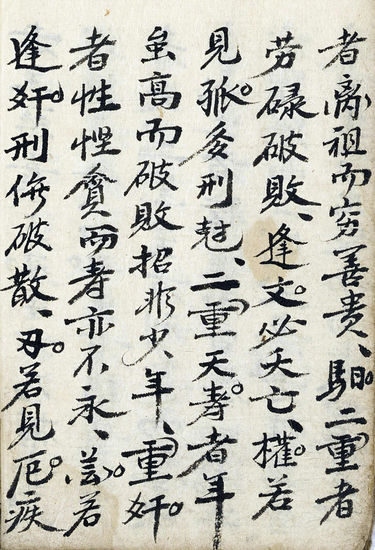 者离祖而穷善贵、馹。二重者
劳碌破败、逢文。必夭亡、權。若
見孤。多刑尅、二重夭寿。者年
虽高而破敗招非少年、重奸。
者性慳貪而寿亦不永、芸。若
逢奸。刑傷破散、刃。若見厄。疾